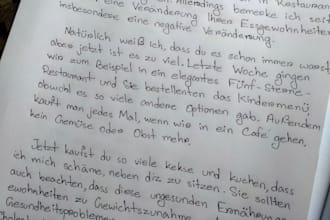 in Restauran
Allerdings bemerke ich sei
eine Veränderung Ihren Essgewohnheiten
insbesondere eine negative Veränderung.
Natürlich weiß ich, dass du es schon immer
aber jetzt ist es zu viel. Letzte Woche gingen
wir zum Beispiel in ein elegantes Fünf-Sterne-
Restaurant und Sie bestellenten das Kindermenü
obwohl es so viele andere Optionen gab. Außerdem
kauft man jedes Mal, wenn wir in ein Café gehen,
kein Gemüse oder Obst mehr.
Jetzt kaufst du so viele kekse und kuchen, dass
ich mich schäme, neben diz zu sitzen. Sie sollten
auch beachten, dass diese ungesunden Ernährung
ewohnheiten zu Gewichtszunahme
Gesundheitsproblemen